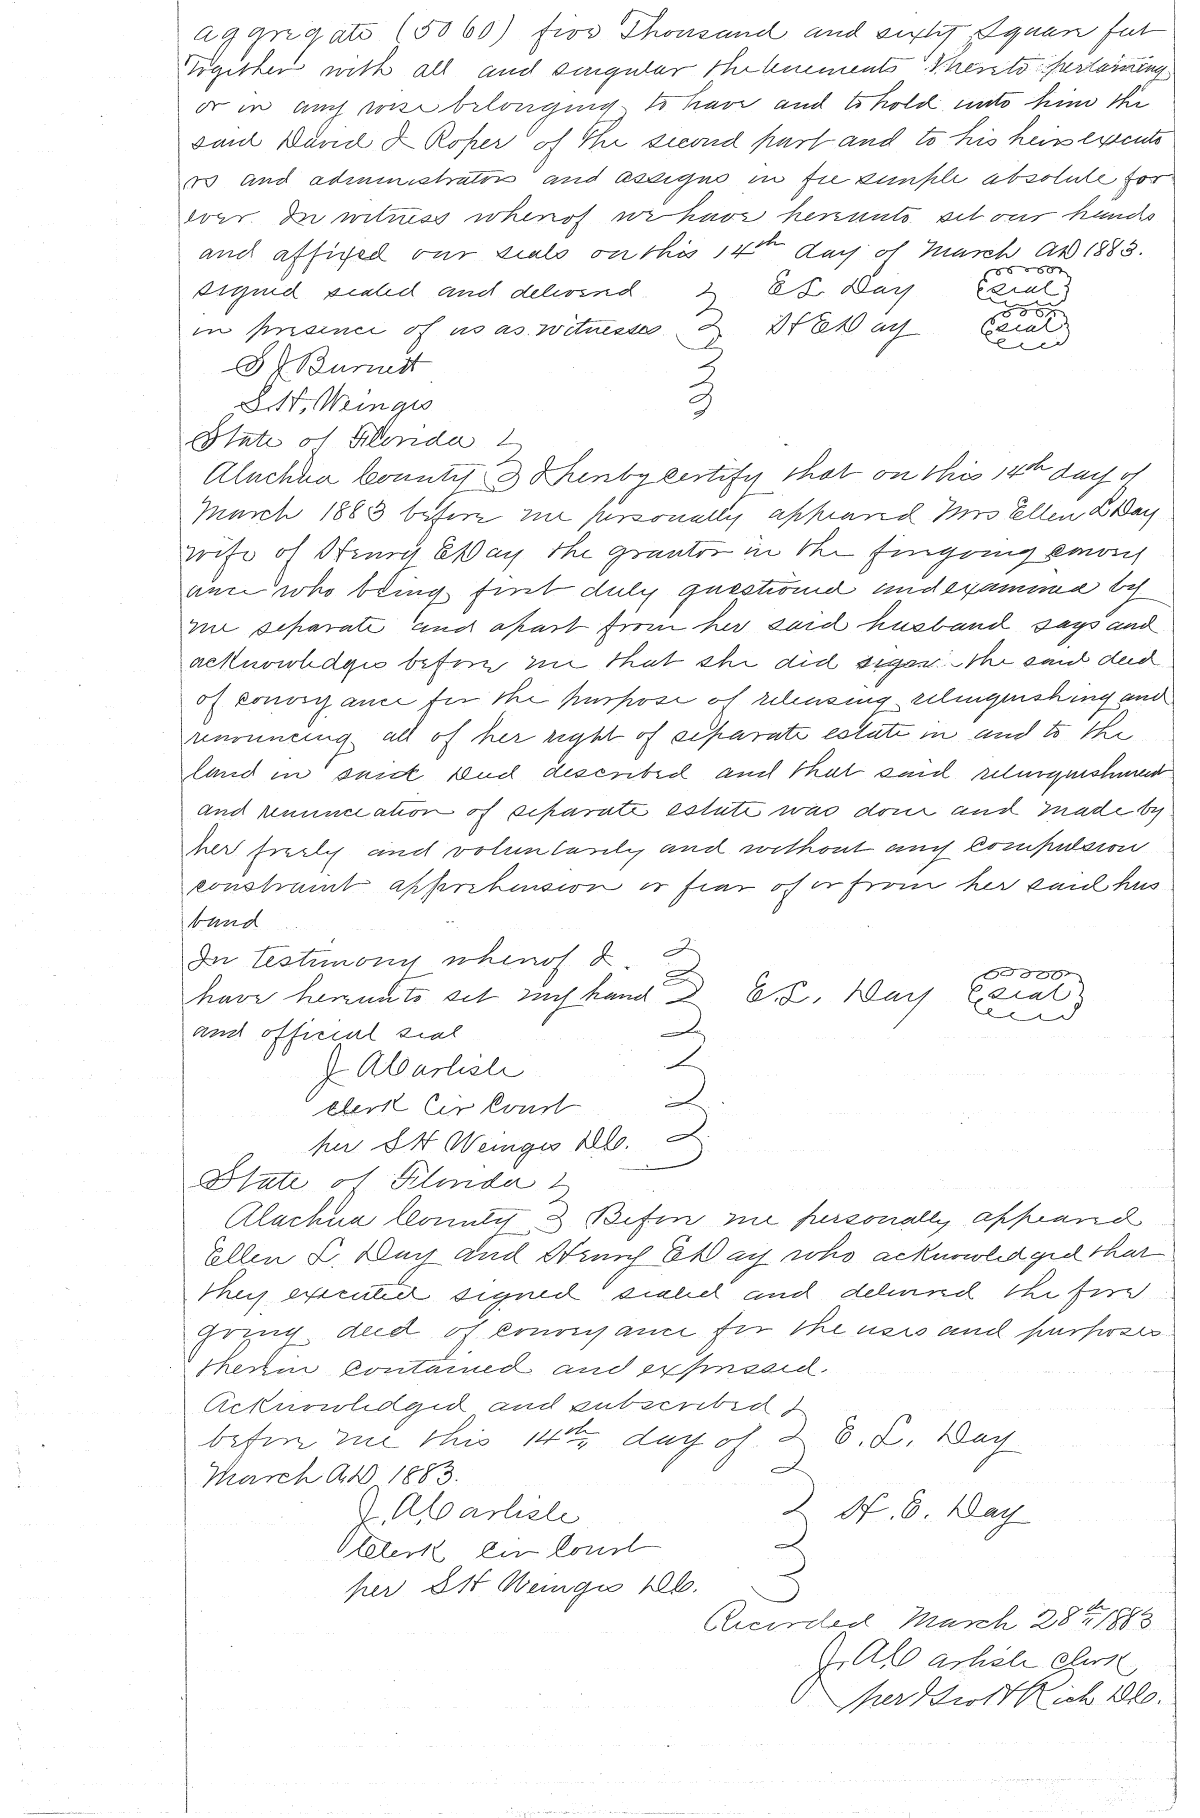 aggregate (5060) five Thousand and sixty Square feet
Together with all and singular the tenements thereto pertaining
or in any wise belonging to have and to hold unto him the
said David I Roper of the second part and to his heirs executo
rs and administrators and assigns in fee simple absolute for
ever. In witness whereof we have hereunto set our hands
and affixed our seals on this 14th day of March AD 1883.
signed sealed and delivered E L Day Seal
in presence of us as witnesses H E Day Seal
S J Burnett
S.H. Weinges
State of Florida
Alachua County I hereby certify that on this 14th day of
March 1883 before me personally appeared Mrs Ellen L Day
wife of Henry E Day the grantor in the foregoing convey
ance who being first duly questioned and examined by
me separate and apart from her said husband says and
acknowledges before me that she did sign the said deed
of conveyance for the purpose of releasing relinquishing and
renouncing all of her right of separate estate in and to the
land in said Deed described and that said relinquishment
and renunciation of separate estate was done and made by
her freely and voluntarily and without any compulsion
constraint apprehension or fear of or from her said hus
band
In testimony whereof I
have hereunto set my hand E.L. Day Seal
and official seal
J A Carlisle
Clerk Cir Court
per S H Weinges D.C.
State of Florida
Alachua County Before me personally appeared
Ellen L. Day and Henry E Day who acknowledged that
they executed signed sealed and delivered the fore
going deed of conveyance for the uses and purposes
therein contained and expressed.
Acknowledged and subscribed
before me this 14th day of E. L. Day
March A.D. 1883.
J. A. Carlisle H. E. Day
Clerk Cir Court
per S H Weinges D.C.
Recorded March 28th 1883
J. A. Carlisle Clerk
per Rich D.C.